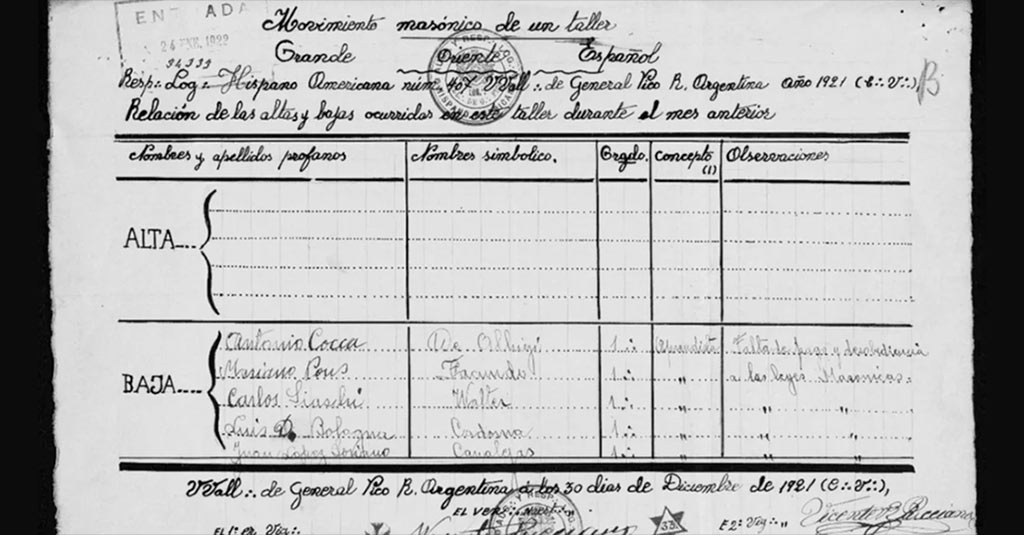 ENTRADA
24 ENE. 1922
Movimiento masónico de un taller
Grande Oriente Español
Resp∴ Log∴ Hispano Americana núm 407 VVall∴ de General Pico R. Argentina año 1921 (E∴ V∴) B
Relación de las altas y bajas ocurridas en este taller durante el mes anterior
Nombres y apellidos profanos Nombres simbolico. Grado. Concepto (1) Observaciones
ALTA
BAJA
Antonio Cocca De Albizi 1∴ Aprendiz Falta de pago y desobediencia
Mariano Pons Facundo 1∴ " a las leyes Masonicas.
Carlos Walter 1∴ " " "
Luis Bologna Cordoma 1∴ " " "
Juan López Soriano Canalejas 1∴ " " "
VVall∴ de General Pico R. Argentina á los 30 dias de Diciembre de 1921 (E∴ V∴),
EL VEN∴ MAEST∴,
El 1er Vig∴ 33 El 2º Vig∴,,